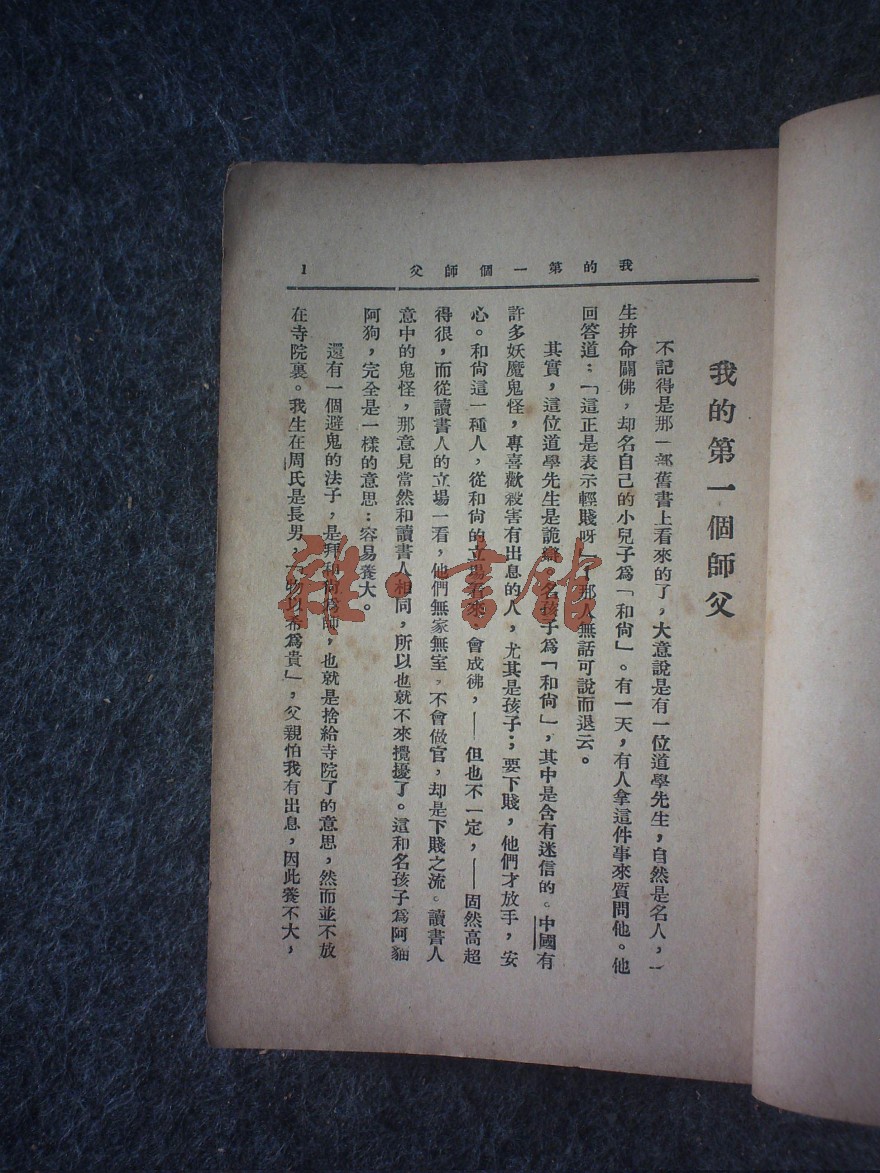 我的第一個師父
1
我的第一個師父
不記得是那一部舊書上看來的了，大意說是有一位道學先生，自然是名人，一
生拚命闢佛，却名自己的小兒子爲「和尙」。有一天，有人拿這件事來質問他。他
回答道：「這正是表示輕賤呀！」那人無話可說而退云。
其實，這位道學先生是詭辯。名孩子爲「和尙」，其中是含有迷信的。中國有
許多妖魔鬼怪，專喜歡殺害有出息的人，尤其是孩子；要下賤，他們才放手，安
心。和尙這一種人，從和尙的立場看來，會成佛，——但也不一定，——固然高超
得很，而從讀書人的立場一看，他們無家無室，不會做官，却是下賤之流。讀書人
意中的鬼怪，那意見當然和讀書人相同，所以也就不來攪擾了。這和名孩子爲阿貓
阿狗，完全是一樣的意思：容易養大。
還有一個避鬼的法子，是拜和尙爲師，也就是捨給寺院了的意思，然而並不放
在寺院裏。我生在周氏是長男，「物以希爲貴」，父親怕我有出息，因此養不大，
雜·書館